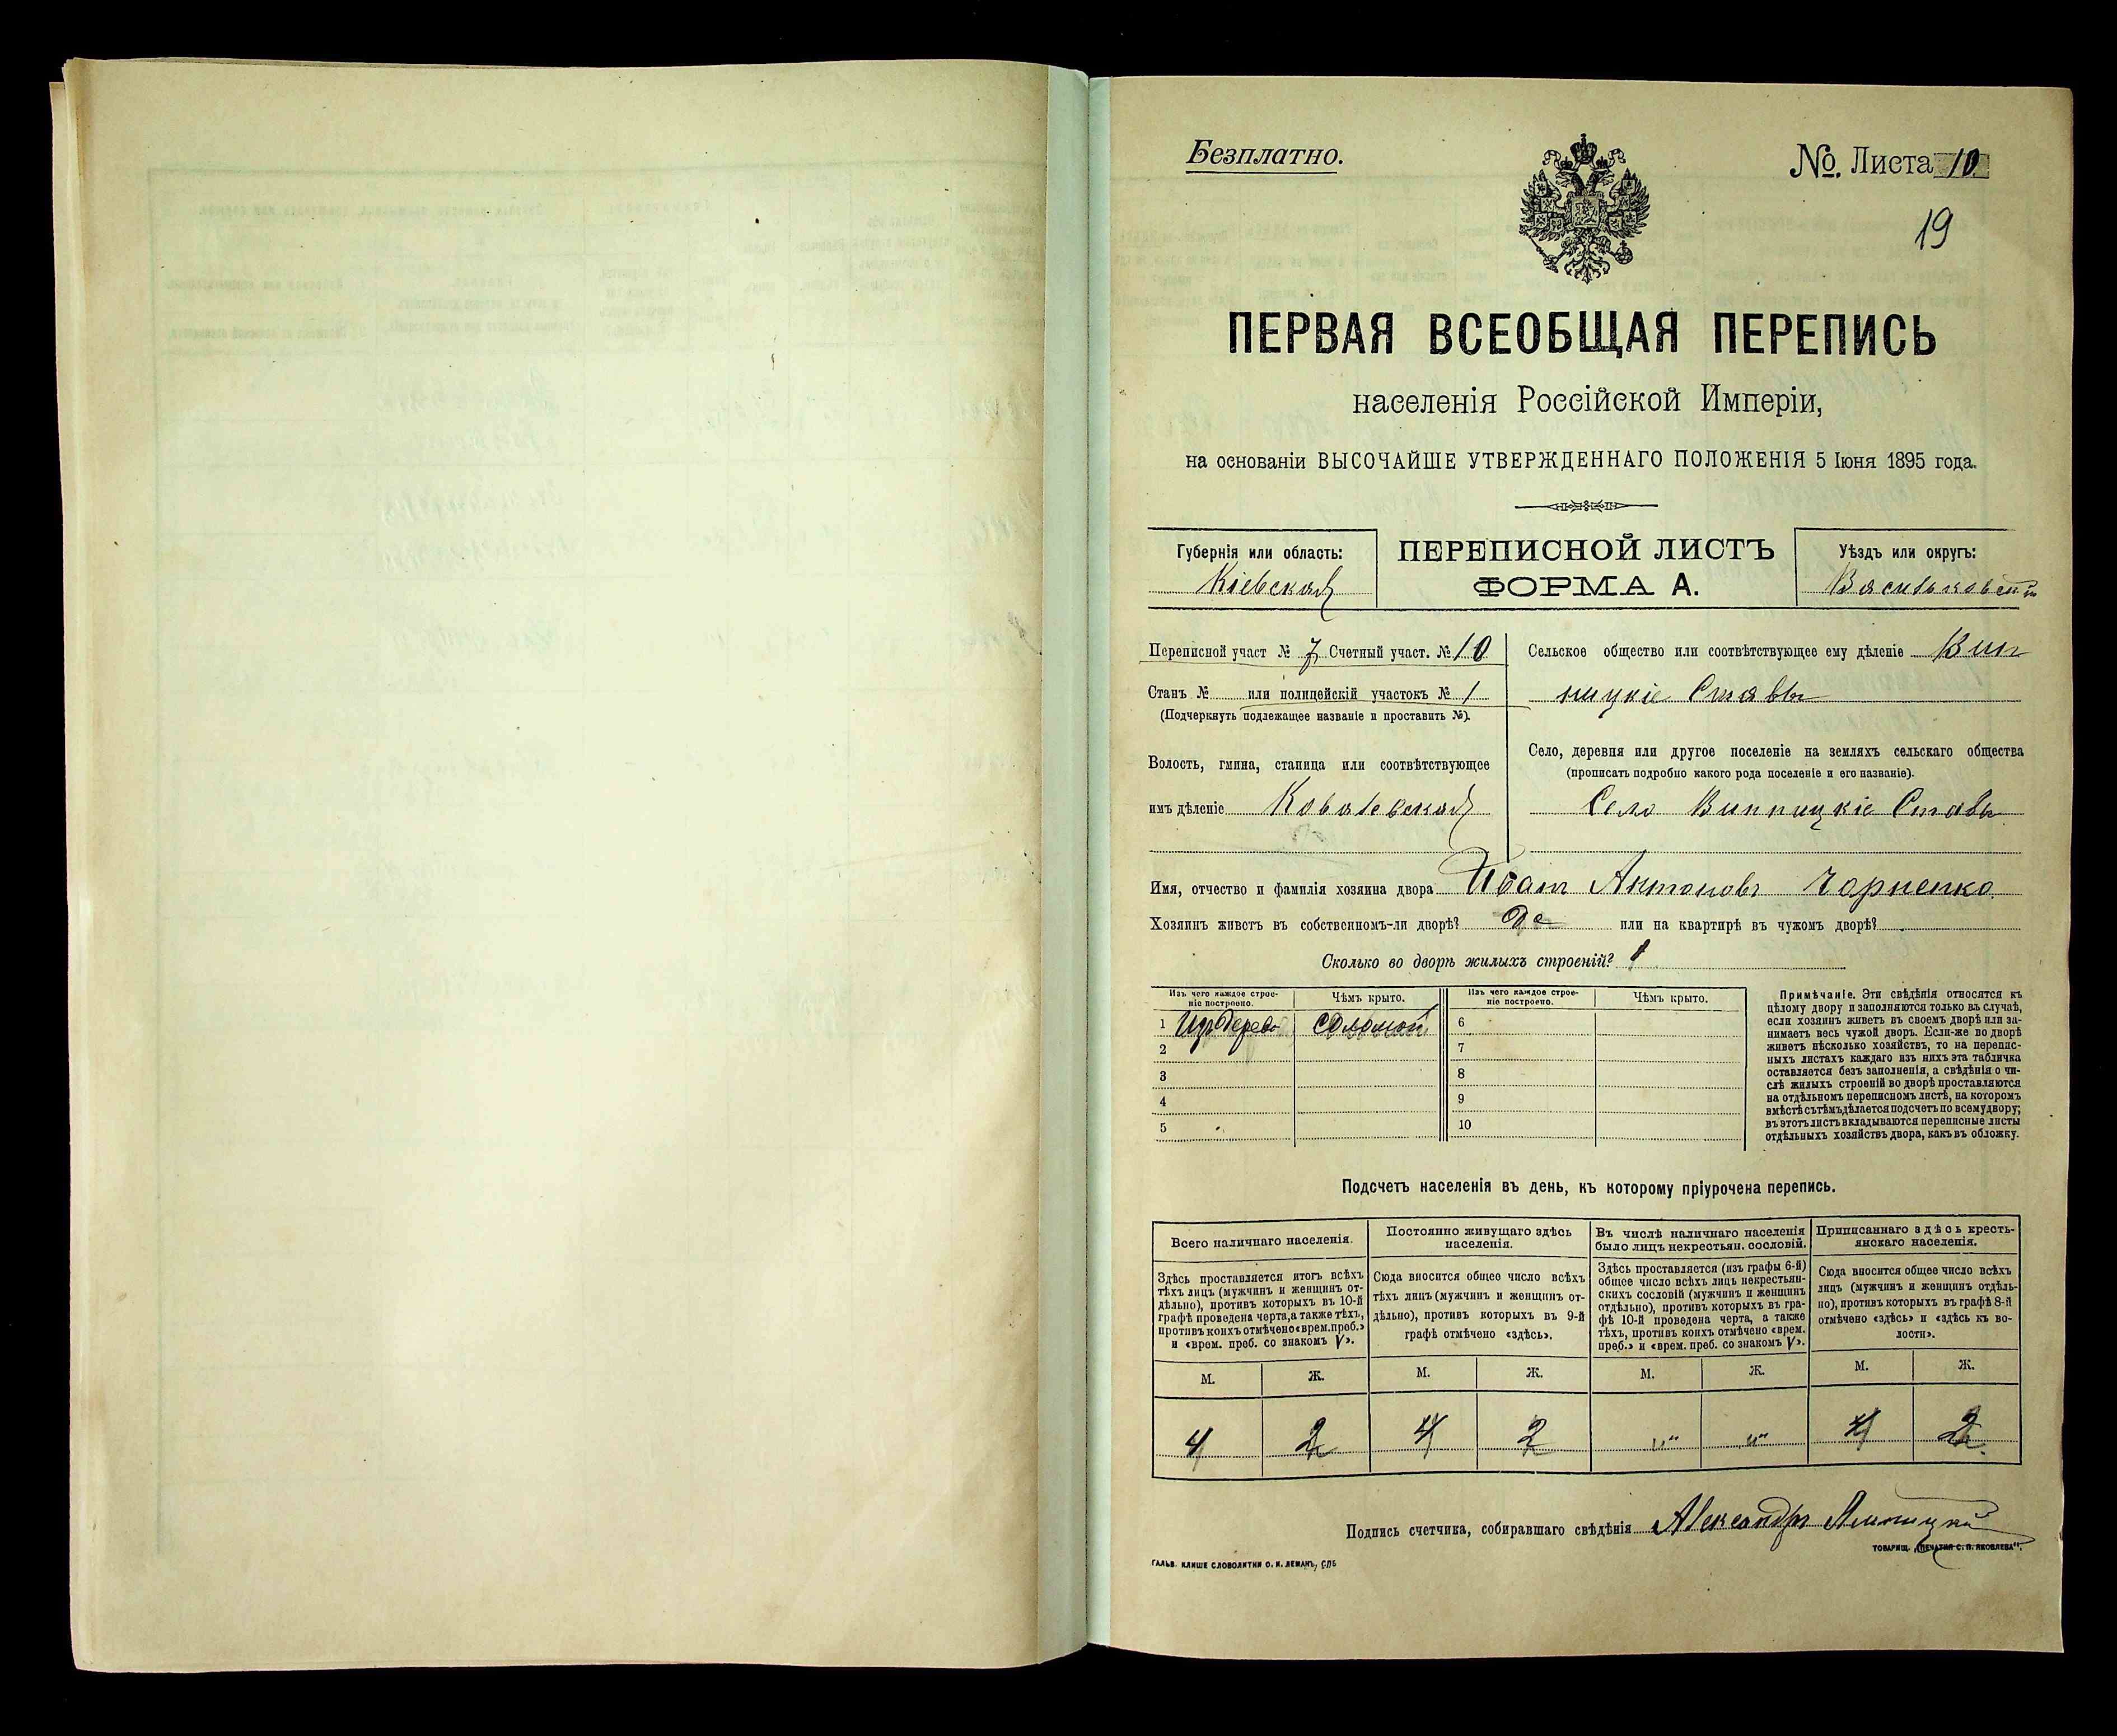 Безплатно.
№. Листа 10
19
ПЕРВАЯ ВСЕОБЩАЯ ПЕРЕПИСЬ
населенія Россійской Имперіи,
на основаніи ВЫСОЧАЙШЕ УТВЕРЖДЕННАГО ПОЛОЖЕНІЯ 5 Іюня 1895 года.
Губернія или область:
Кіевская
ПЕРЕПИСНОЙ ЛИСТЪ
ФОРМА А.
Уѣздъ или округъ:
Васильковскій
Переписной участ № 7 Счетный участ. № 10
Станъ № или полицейскій участокъ № 1
(Подчеркнуть подлежащее названіе и проставить №).
Волость, гмина, станица или соотвѣтствующее
имъ дѣленіе Ковалевская
Сельское общество или соотвѣтствующее ему дѣленіе Вин
ницкіе Ставы
Село, деревня или другое поселеніе на земляхъ сельскаго общества
(прописать подробно какого рода поселеніе и его названіе).
Село Винницкіе Ставы
Имя, отчество и фамилія хозяина двора Иванъ Антоновъ Чорненко
Хозяинъ живетъ въ собственномъ-ли дворѣ? да или на квартирѣ въ чужомъ дворѣ?
Сколько во дворѣ жилыхъ строеній? 1
Изъ чего каждое строе-
ніе построено.
Чѣмъ крыто.
Изъ чего каждое строе-
ніе построено.
Чѣмъ крыто.
1 Изъ дерево соломой 6
2 7
3 8
4 9
5 10
Примѣчаніе. Эти свѣдѣнія относятся къ
цѣлому двору и заполняются только въ случаѣ,
если хозяинъ живетъ въ своемъ дворѣ или за-
нимаетъ весь чужой дворъ. Если-же во дворѣ
живетъ нѣсколько хозяйствъ, то на перепис-
ныхъ листахъ каждаго изъ нихъ эта табличка
оставляется безъ заполненія, а свѣдѣнія о чи-
слѣ жилыхъ строеній во дворѣ проставляются
на отдѣльномъ переписномъ листѣ, на которомъ
вмѣстѣ съ тѣмъ дѣлается подсчетъ по всему двору;
въ этотъ листъ вкладываются переписные листы
отдѣльныхъ хозяйствъ двора, какъ въ обложку.
Подсчетъ населенія въ день, къ которому пріурочена перепись.
Всего наличнаго населенія.
Здѣсь проставляется итогъ всѣхъ
тѣхъ лицъ (мужчинъ и женщинъ от-
дѣльно), противъ которыхъ въ 10-й
графѣ проведена черта, а также тѣхъ,
противъ коихъ отмѣчено «врем. преб.»
и «врем. преб. со знакомъ V».
Постоянно живущаго здѣсь
населенія.
Сюда вносится общее число всѣхъ
тѣхъ лицъ (мужчинъ и женщинъ от-
дѣльно), противъ которыхъ въ 9-й
графѣ отмѣчено «здѣсь».
Въ числѣ наличнаго населенія
было лицъ некрестьян. сословій.
Здѣсь проставляется (изъ графы 6-й)
общее число всѣхъ лицъ некрестьян-
скихъ сословій (мужчинъ и женщинъ
отдѣльно), противъ которыхъ въ гра-
фѣ 10-й проведена черта, а также
тѣхъ, противъ коихъ отмѣчено «врем.
преб.» и «врем. преб. со знакомъ V».
Приписаннаго здѣсь кресть-
янскаго населенія.
Сюда вносится общее число всѣхъ
лицъ (мужчинъ и женщинъ отдѣль-
но), противъ которыхъ въ графѣ 8-й
отмѣчено «здѣсь» и «здѣсь къ во-
лости».
М. Ж. М. Ж. М. Ж. М. Ж.
4 2 4 2 „ “ „ “ 4 2
Подпись счетчика, собиравшаго свѣдѣнія Александръ
ГАЛЬВ. КЛИШЕ СЛОВОЛИТНИ О. И. ЛЕМАНЪ, СПБ
ТОВАРИЩ. „ПЕЧАТНЯ С. П. ЯКОВЛЕВА“.